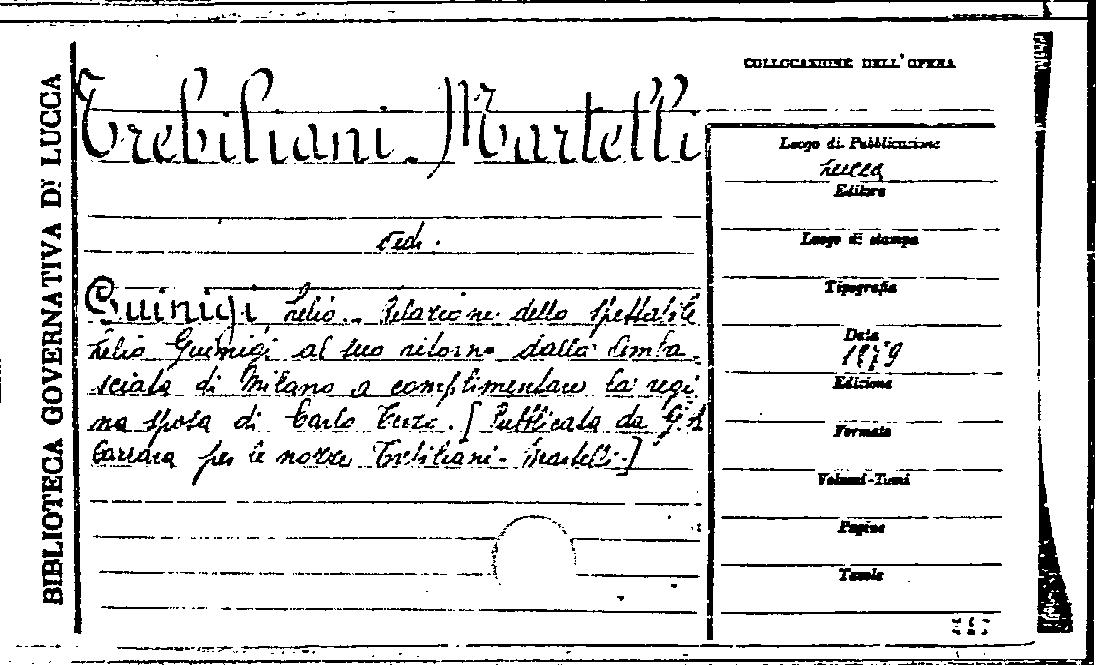 BIBLIOTECA GOVERNATIVA DI LUCCA
COLLOCAZIONE DELL'OPERA
Trebiliani-Martelli
vedi.
Guinigi Lelio.- Relazione dello Spettabile
Lelio Guinigi al suo ritorno dalla Amba
sciata di Milano a complimentare la regi
na sposa di Carlo Terzo. [Pubblicata da G.A
Carrara per le nozze Trebiliani-Martelli-]
Luogo di Pubblicazione
Lucca
Editore
Luogo di stampa
Tipografia
Data
1879
Edizione
Formato
Volumi-Tomi
Pagine
Tavole